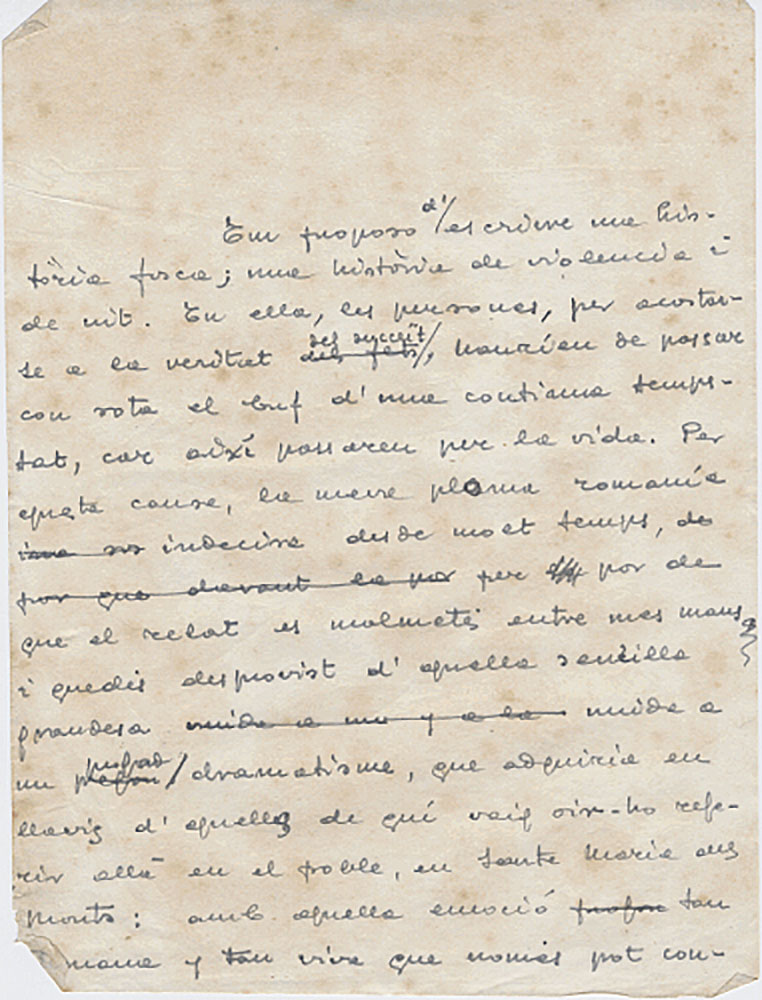 Em proposo d'/escriure una his-
tòria fosca; una història de violencia i
de nit. En ella, les persones, per acostar-
se a la veritat dels fets del succeït/, haurien de passar
con sota el buf d'una contianua temps-
tat, car així passaren per la vida. Per
questa causa, la meva ploma romania
indecisa desde molt temps, de
por que davant la por per por de
que el relat es malmetés entre mes mans
i quedis desprovist d'aquella sencilla
grandesa unida a un y a la unida a
un pregon/dramatisme, que adquiria en
llavis d'aquells de qui vaig oir-ho refe-
rir allà en el poble, en Santa Maria dels
Monts: amb aquella emoció profon tan
mana y tan viva que només pot con-